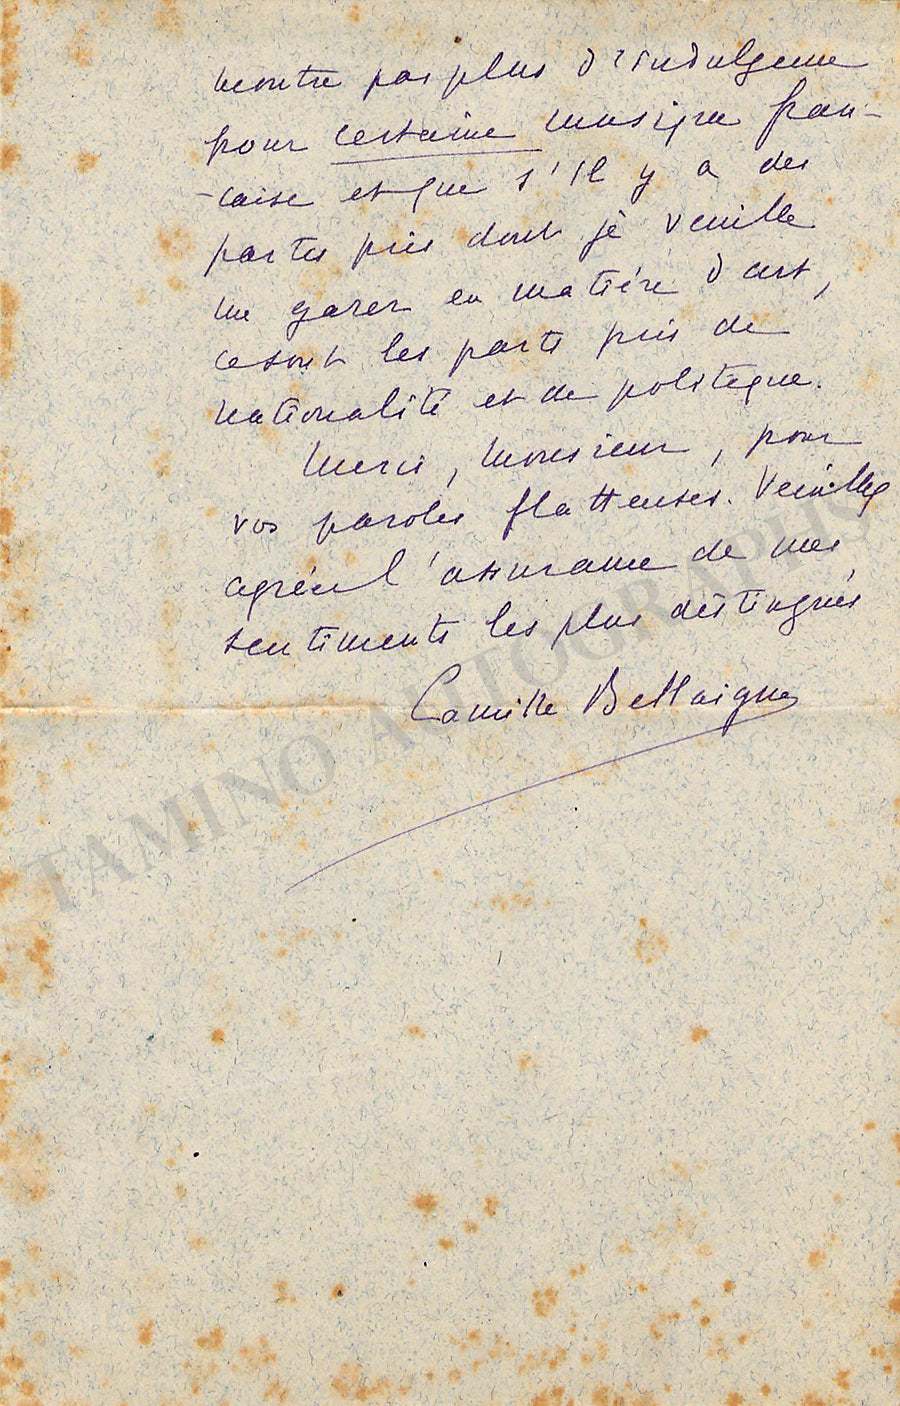 montre pas plus d'indulgence
pour certaine musique fran-
-caise et que s'il y a des
partis pris dont je veuille
me garer en matière d'art,
ce sont les partis pris de
nationalité et de politique.
Merci, Monsieur, pour
vos paroles flatteuses. Veuillez
agréer l'assurance de mes
sentiments les plus distingués
Camille Bellaigue
TAMINO AUTOGRAPHS